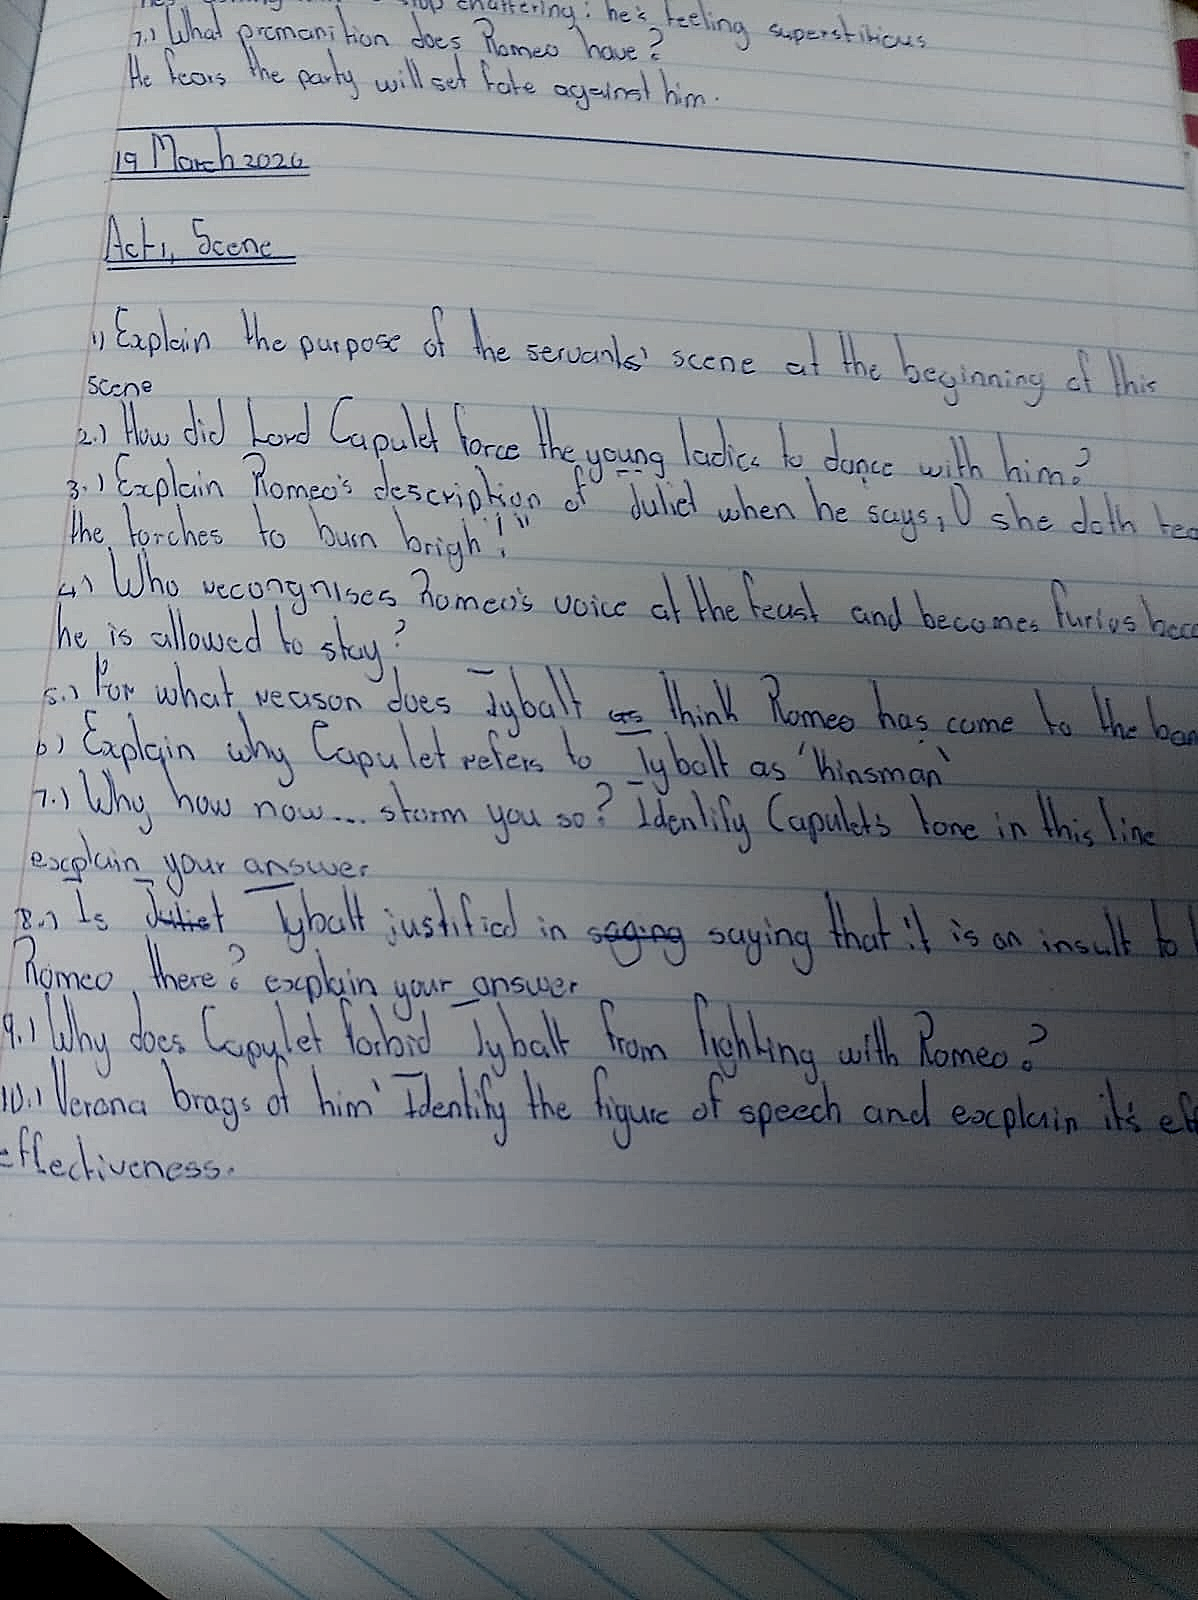 stop chattering; he's feeling superstitious
7.) What premanition does Romeo have?
He fears the party will set fate against him.
19 March 2026
Act 1, Scene
1) Explain the purpose of the servants' scene at the beginning of this
scene
2.) How did Lord Capulet force the young ladies to dance with him?
3.) Explain Romeo's description of Juliet when he says, O she doth tea
the torches to burn brigh!"
4) Who recongnises Romeo's voice at the feast and becomes furius beca
he is allowed to stay?
5.) For what reason does Tybalt as think Romeo has come to the ban
6) Explain why Capulet refers to Tybalt as 'kinsman'
7.) Why how now... storm you so? Identify Capulet's tone in this line
explain your answer
8.) Is Juliet Tybalt justified in saging saying that it is an insult to
Romeo there? explain your answer
9.) Why does Capulet forbid Tybalt from fighting with Romeo?
10.) Verona brags of him' Identify the figure of speech and explain it's eff
effectiveness.